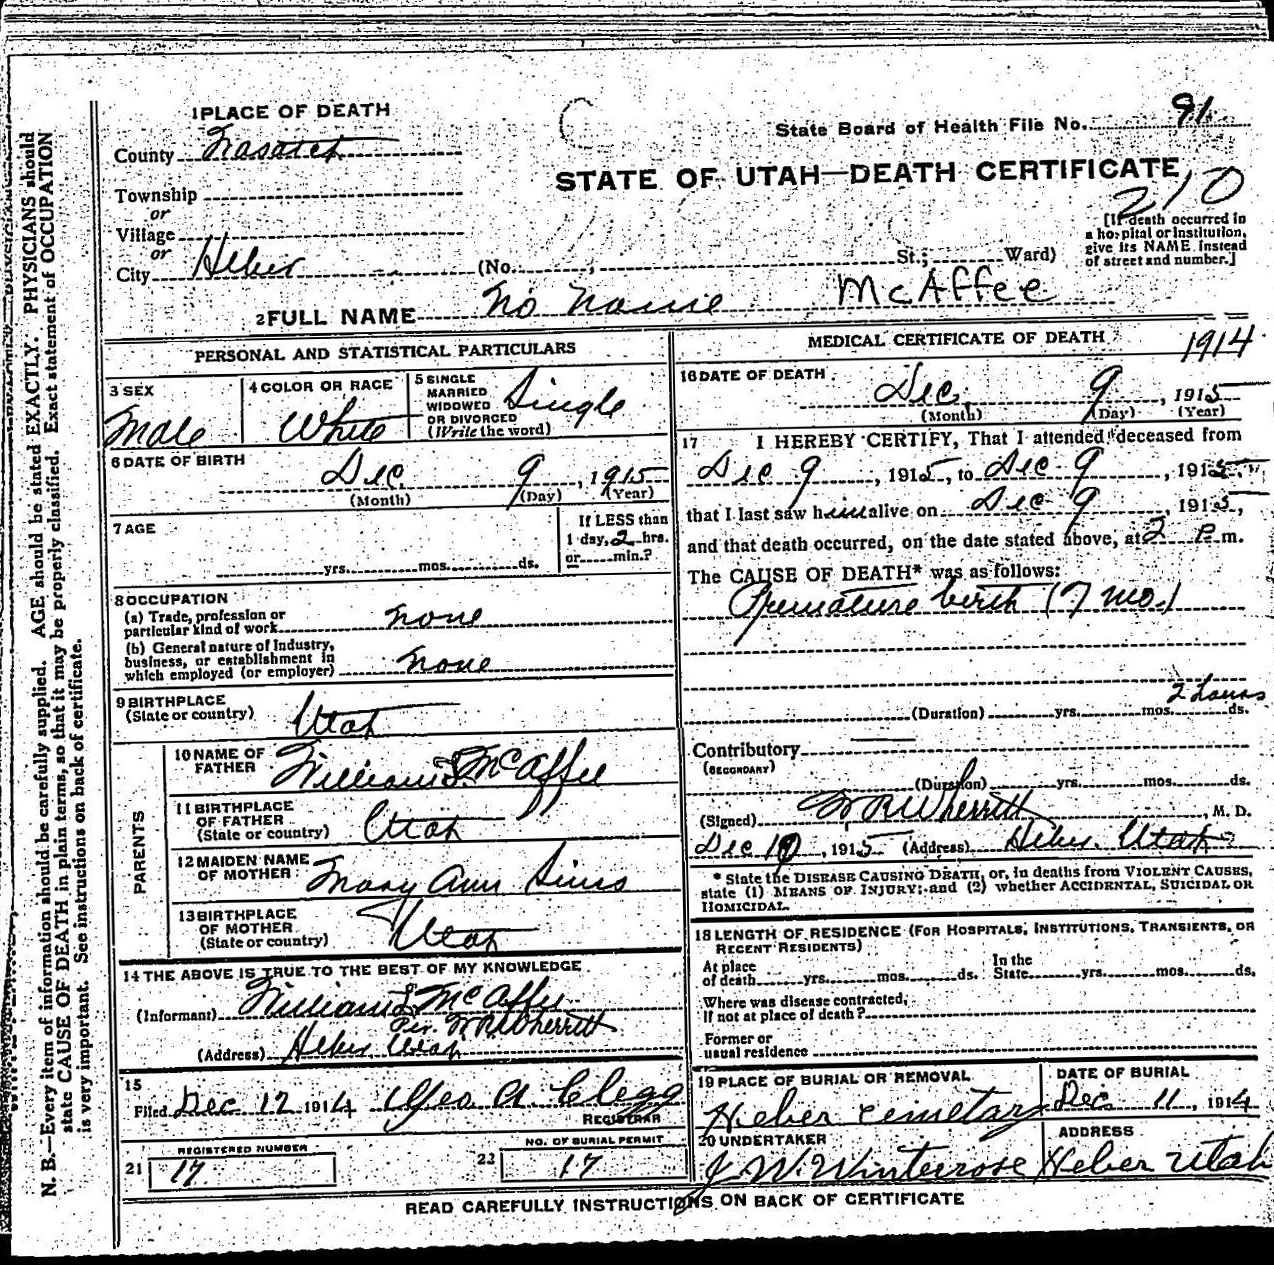 1 PLACE OF DEATH
County Wasatch
Township
or
Village
or
City Heber (No. , St.; Ward)
State Board of Health File No. 91
STATE OF UTAH—DEATH CERTIFICATE
210
[If death occurred in
a hospital or institution,
give its NAME instead
of street and number.]
2 FULL NAME No name McAffee
PERSONAL AND STATISTICAL PARTICULARS
3 SEX
Male
4 COLOR OR RACE
White
5 SINGLE
MARRIED
WIDOWED
OR DIVORCED
(Write the word)
Single
6 DATE OF BIRTH
Dec. 9, 1915
(Month) (Day) (Year)
7 AGE
yrs. mos. ds.
If LESS than
1 day, 2 hrs.
or min.?
8 OCCUPATION
(a) Trade, profession or
particular kind of work none
(b) General nature of Industry,
business, or establishment in
which employed (or employer) none
9 BIRTHPLACE
(State or country) Utah
PARENTS
10 NAME OF
FATHER William L McAffee
11 BIRTHPLACE
OF FATHER
(State or country) Utah
12 MAIDEN NAME
OF MOTHER Mary Ann Sims
13 BIRTHPLACE
OF MOTHER
(State or country) Utah
14 THE ABOVE IS TRUE TO THE BEST OF MY KNOWLEDGE
(Informant) William L McAffee
Per. W R Wherritt
(Address) Heber Utah
15
Filed Dec 12 1914 Geo A. Clegg
REGISTRAR
21 REGISTERED NUMBER
17
22 NO. OF BURIAL PERMIT
17
MEDICAL CERTIFICATE OF DEATH
1914
16 DATE OF DEATH
Dec. 9, 1915
(Month) (Day) (Year)
17 I HEREBY CERTIFY, That I attended deceased from
Dec 9, 1915, to Dec 9, 1915,
that I last saw him alive on Dec 9, 1915,
and that death occurred, on the date stated above, at 2 P. m.
The CAUSE OF DEATH* was as follows:
Premature birth (7 mo.)
2 hours
(Duration) yrs. mos. ds.
Contributory
(SECONDARY)
(Duration) yrs. mos. ds.
(Signed) W R Wherritt, M. D.
Dec 10, 1915 (Address) Heber. Utah
* State the DISEASE CAUSING DEATH, or, in deaths from VIOLENT CAUSES,
state (1) MEANS OF INJURY; and (2) whether ACCIDENTAL, SUICIDAL OR
HOMICIDAL.
18 LENGTH OF RESIDENCE (FOR HOSPITALS, INSTITUTIONS, TRANSIENTS, OR
RECENT RESIDENTS)
At place
of death yrs. mos. ds.
In the
State yrs. mos. ds.
Where was disease contracted,
If not at place of death?
Former or
usual residence
19 PLACE OF BURIAL OR REMOVAL
Heber Cemetary
DATE OF BURIAL
Dec. 11, 1914
20 UNDERTAKER
J W. Winterrose
ADDRESS
Heber Utah
READ CAREFULLY INSTRUCTIONS ON BACK OF CERTIFICATE
N. B.—Every item of information should be carefully supplied. AGE should be stated EXACTLY. PHYSICIANS should
state CAUSE OF DEATH in plain terms, so that it may be properly classified. Exact statement of OCCUPATION
is very important. See instructions on back of certificate.